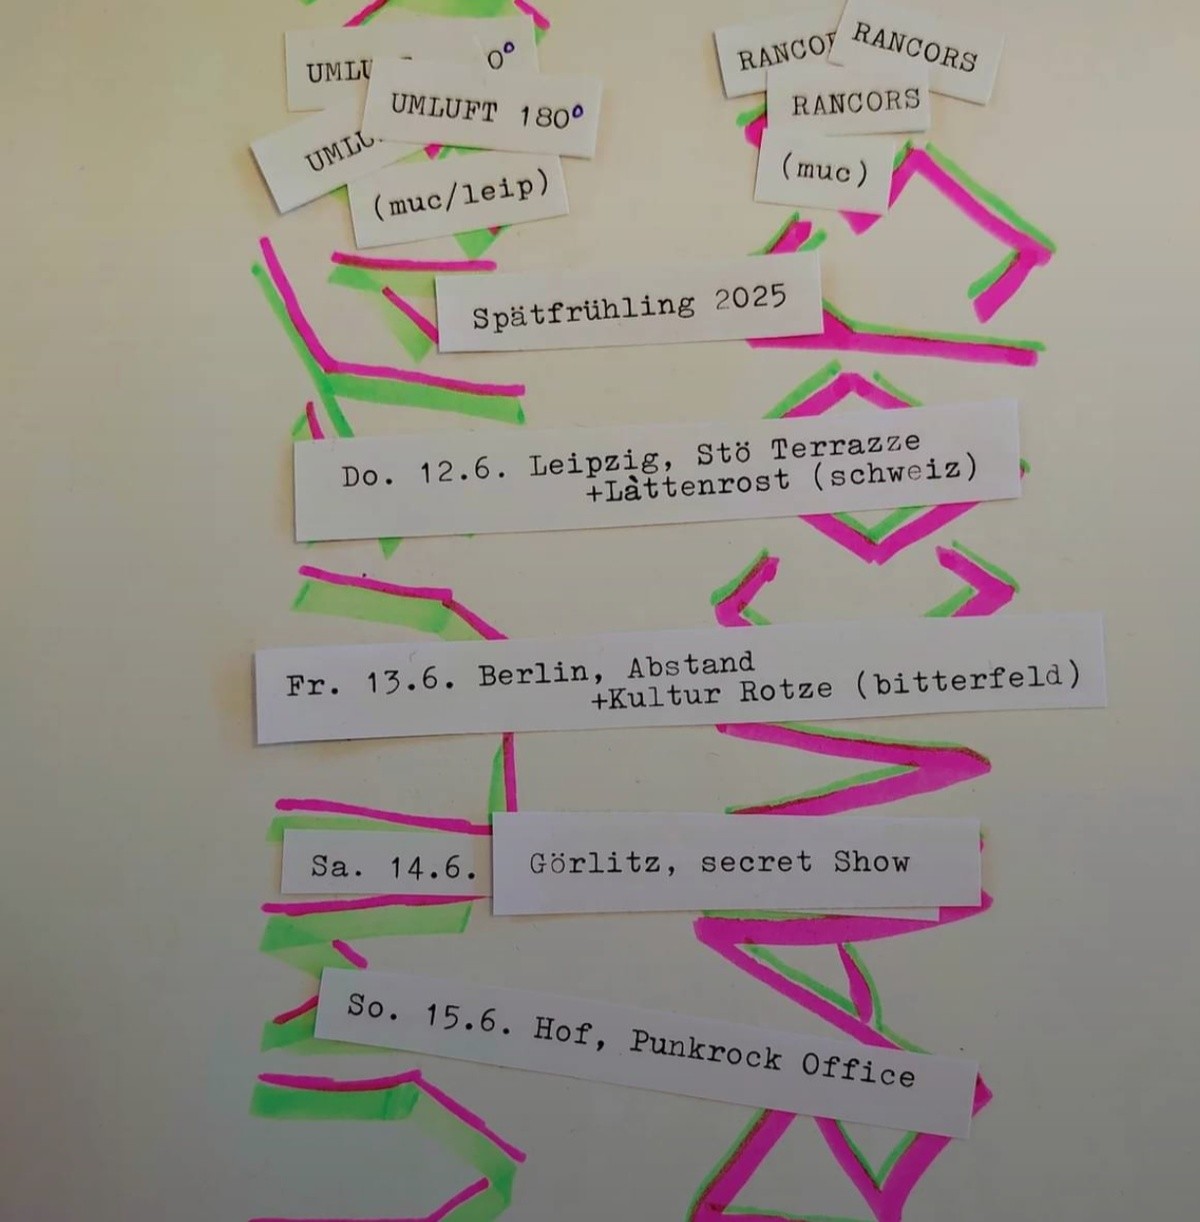 UMLU 0°
UMLUFT 180°
UMLU
(muc/leip)
RANCO
RANCORS
RANCORS
(muc)
Spätfrühling 2025
Do. 12.6. Leipzig, Stö Terrazze
+Làttenrost (schweiz)
Fr. 13.6. Berlin, Abstand
+Kultur Rotze (bitterfeld)
Sa. 14.6. Görlitz, secret Show
So. 15.6. Hof, Punkrock Office